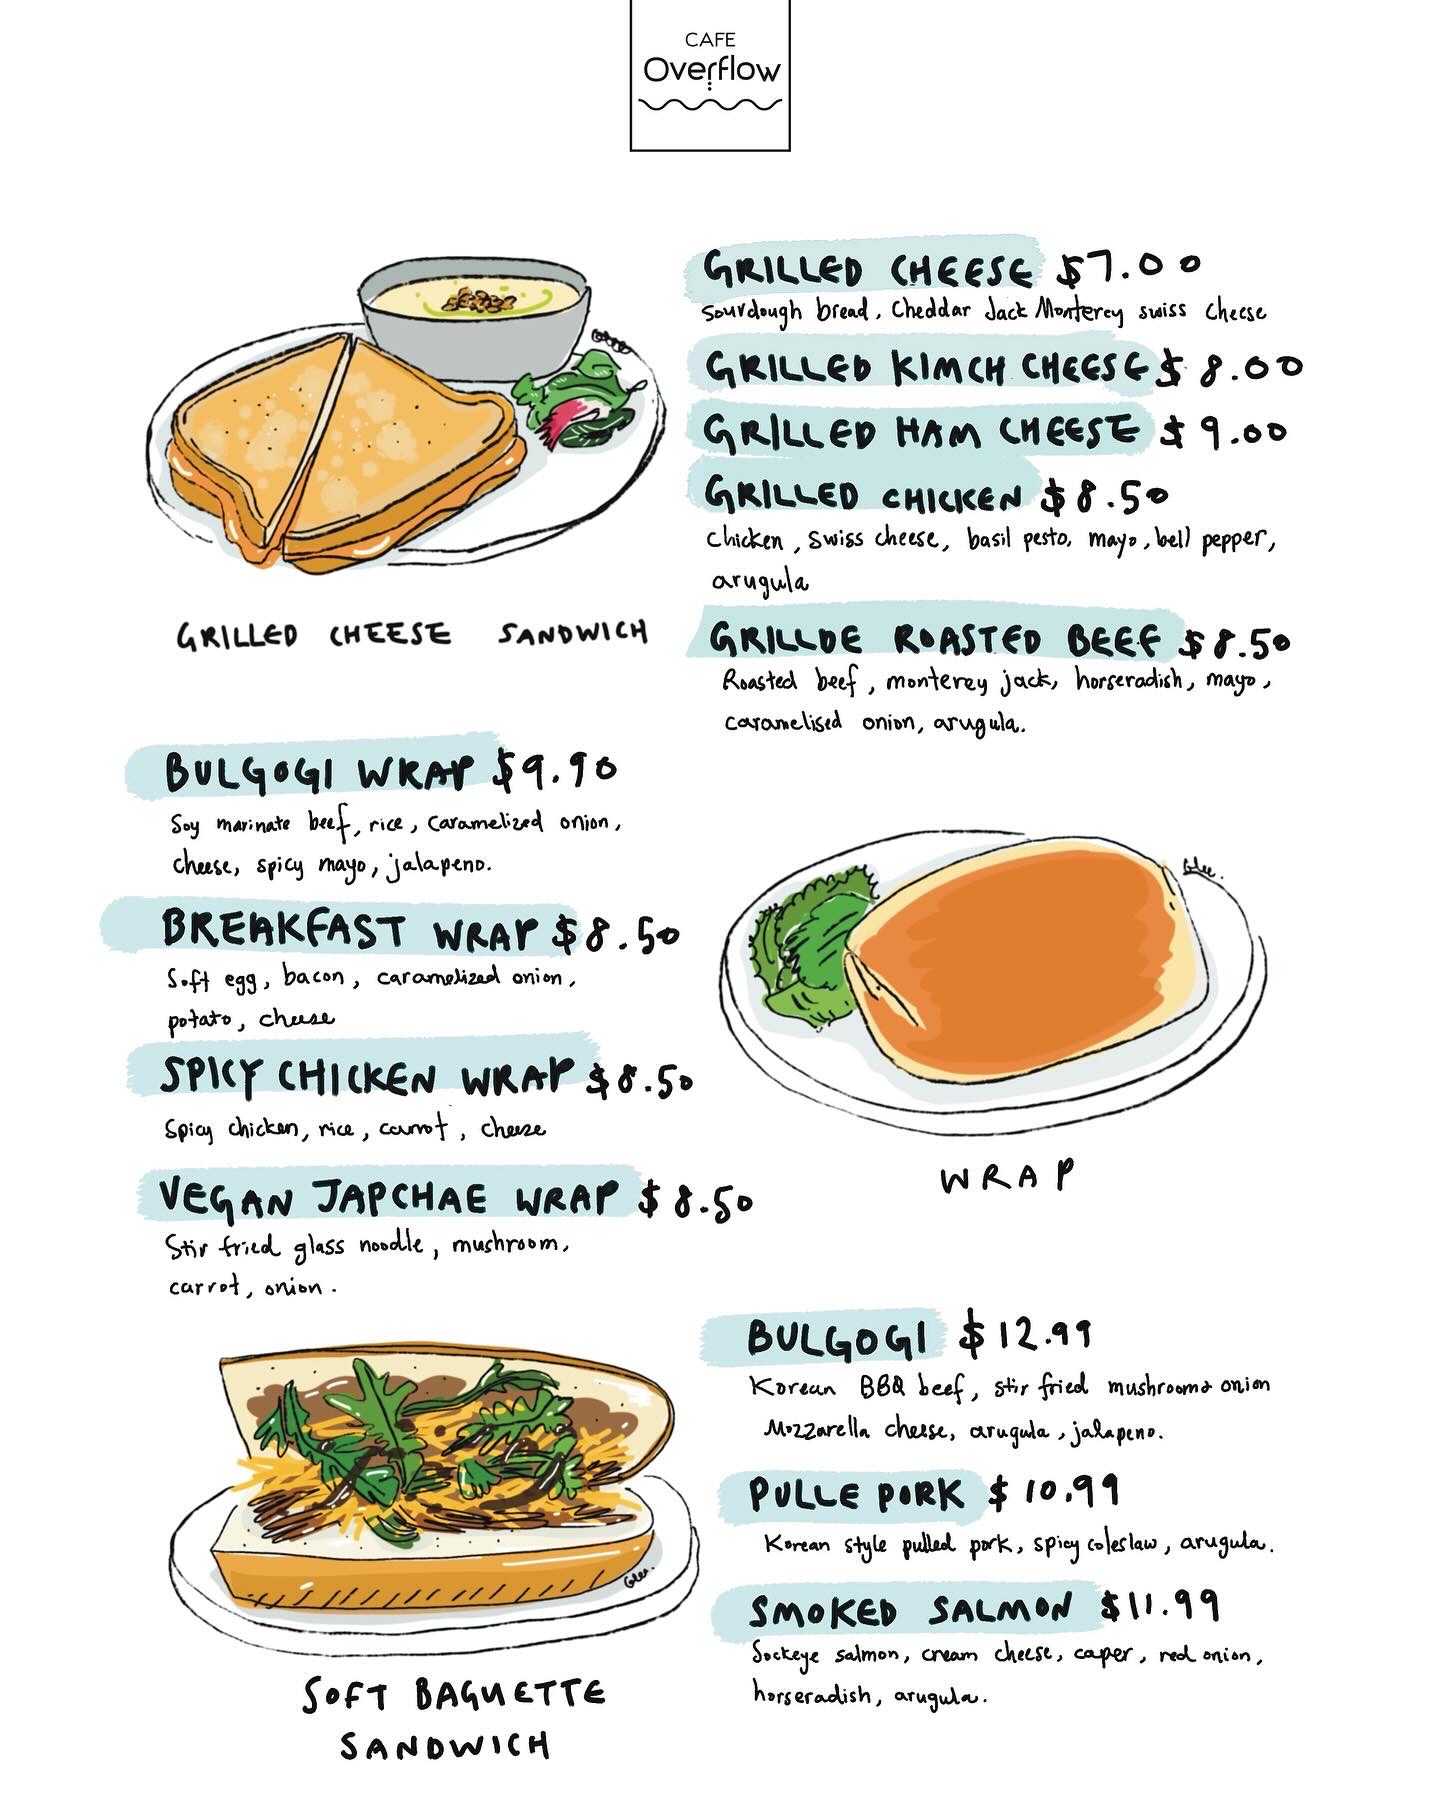 CAFE
Overflow
GRILLED CHEESE $7.00
Sourdough bread, Cheddar Jack Monterey swiss cheese
GRILLED KIMCH CHEESE $8.00
GRILLED HAM CHEESE $9.00
GRILLED CHICKEN $8.50
Chicken, Swiss cheese, basil pesto, mayo, bell pepper,
arugula
GRILLDE ROASTED BEEF $8.50
Roasted beef, monterey jack, horseradish, mayo,
caramelised onion, arugula.
GRILLED CHEESE SANDWICH
BULGOGI WRAP $9.90
Soy marinate beef, rice, caramelized onion,
cheese, spicy mayo, jalapeno.
BREAKFAST WRAP $8.50
Soft egg, bacon, caramelized onion,
potato, cheese
SPICY CHICKEN WRAP $8.50
Spicy chicken, rice, carrot, cheese
VEGAN JAPCHAE WRAP $8.50
Stir fried glass noodle, mushroom,
carrot, onion.
WRAP
BULGOGI $12.99
Korean BBQ beef, stir fried mushroom onion
Mozzarella cheese, arugula, jalapeno.
PULLE PORK $10.99
Korean style pulled pork, spicy coleslaw, arugula.
SMOKED SALMON $11.99
Sockeye salmon, cream cheese, caper, red onion,
horseradish, arugula.
SOFT BAGUETTE
SANDWICH